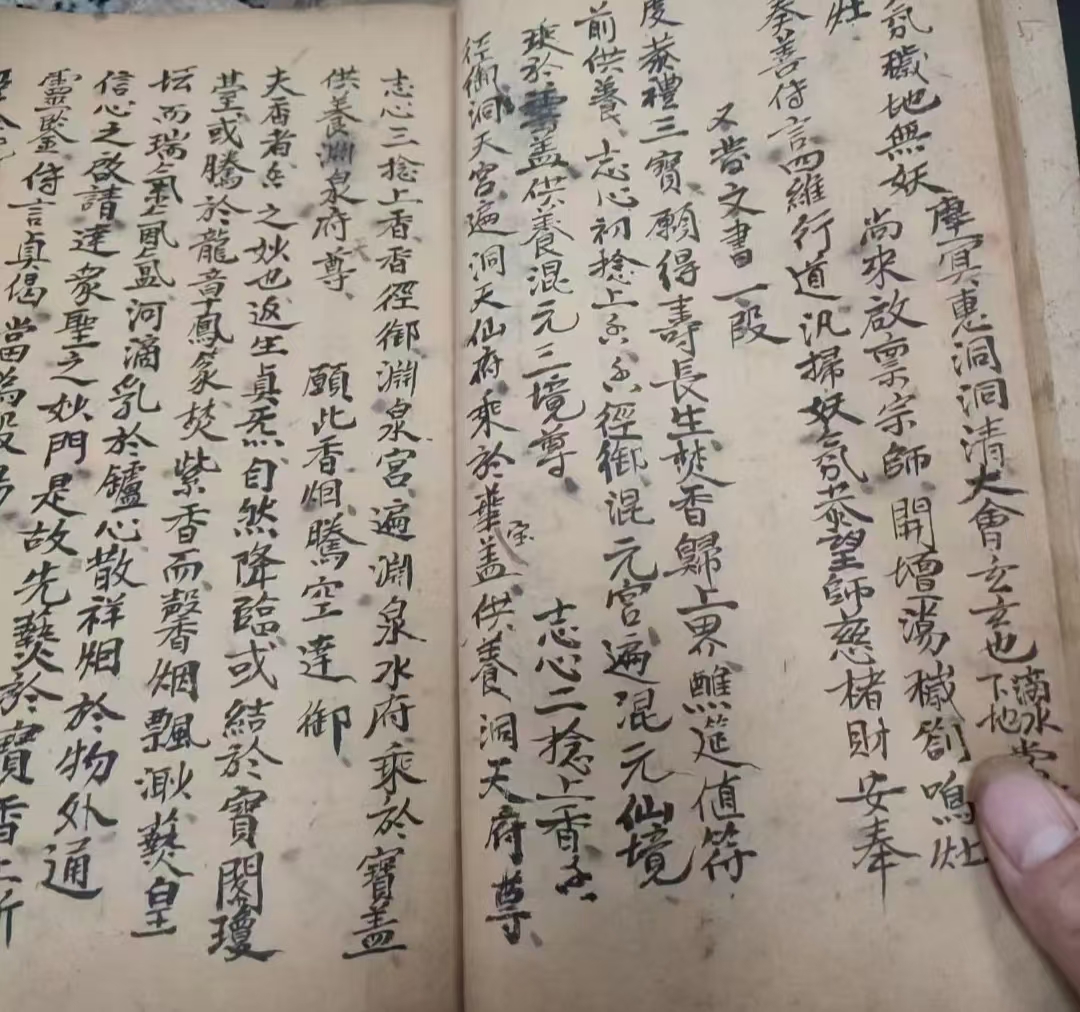 氛穢地無妖 摩冥惠洞洞清大會玄玄也 滴水
下地
灶 尚來啟禀宗師開壇蕩穢劄鳴灶
奏善侍言四維行道汎掃妖氛恭望師慈楮財安奉
又音文書一段
度恭禮三寶願得壽長生焚香歸上界醮筵值符
前供養志心初捻上香香徑御混元宮遍混元仙境
乘於雲盖供養混元三境尊 志心二捻上香香
徑御洞天宮遍洞天仙府乘於華盖供養洞天府尊
宝
志心三捻上香香徑御淵泉宮遍淵泉水府乘於寶盖
供養淵泉府尊 願此香烟騰空達御
天
夫香者香之妙也返生真炁自然降臨或結於寶閣瓊
堂或騰於龍章鳳篆焚紫香而馨香烟飄渺爇皇
坛而瑞氣氤氳河滴乳於鑪心散祥烟於物外通
信心之啟請達衆聖之妙門是故先爇於寶香上祈
靈鑒侍言真偈當為